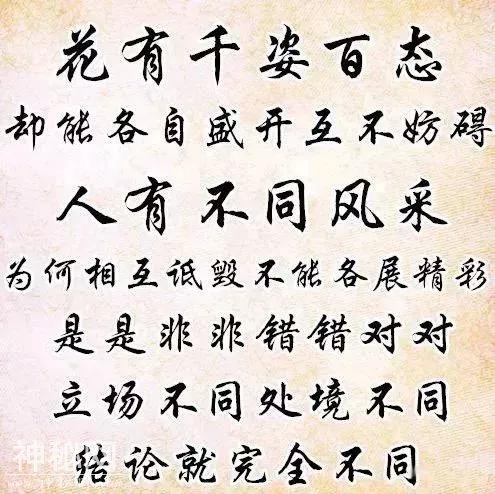 花有千姿百态
却能各自盛开互不妨碍
人有不同风采
为何相互诋毁不能各展精彩
是是非非错错对对
立场不同处境不同
结论就完全不同
神秘网